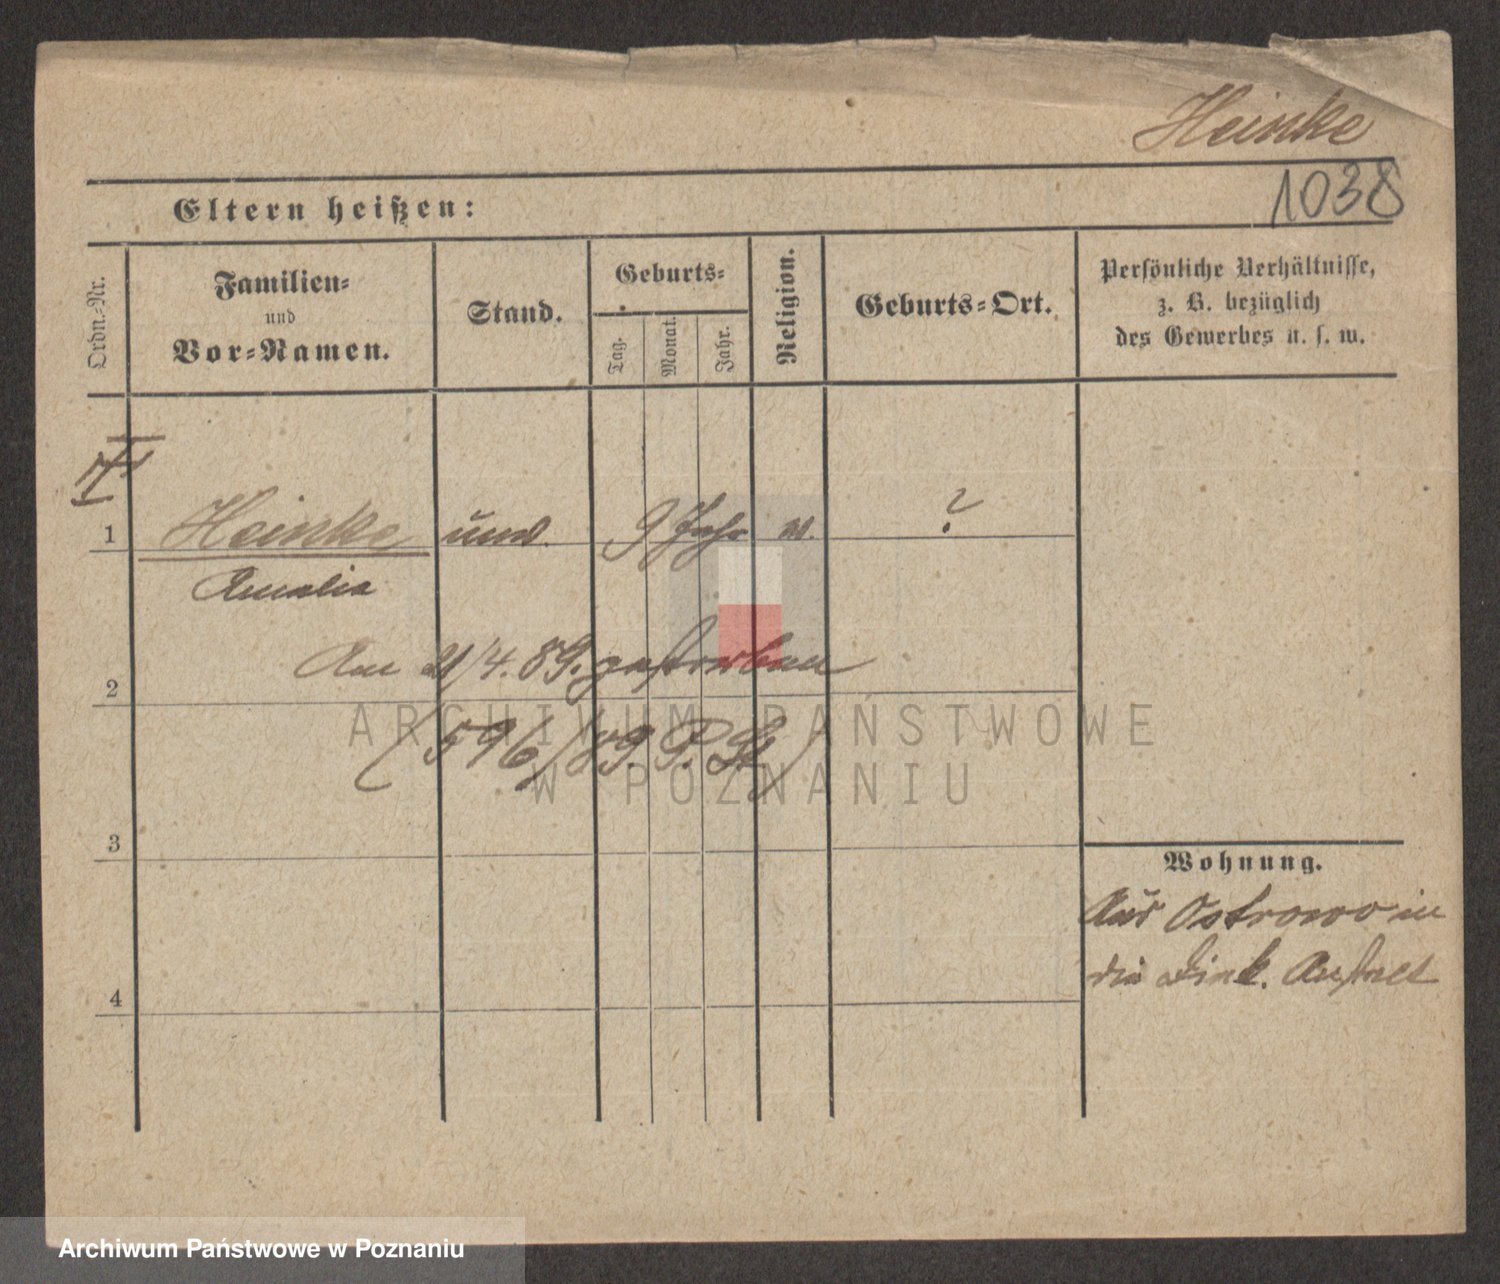 Heinke
1038
Eltern heißen:
Ordn.-Nr.
Familien-
und
Vor-Namen.
Stand.
Geburts-
Tag.
Monat.
Jahr.
Religion.
Geburts-Ort.
Persönliche Verhältnisse,
z. B. bezüglich
des Gewerbes u. s. w.
1 Heinke unv. 9 Jahr ?
Amalia
Am 21/4.89. gestorben
2
(596/89. P. St)
ARCHIWUM PAŃSTWOWE
W POZNANIU
3
Wohnung.
Aus Ostrowo in
die Diak. Anstalt
4
Archiwum Państwowe w Poznaniu